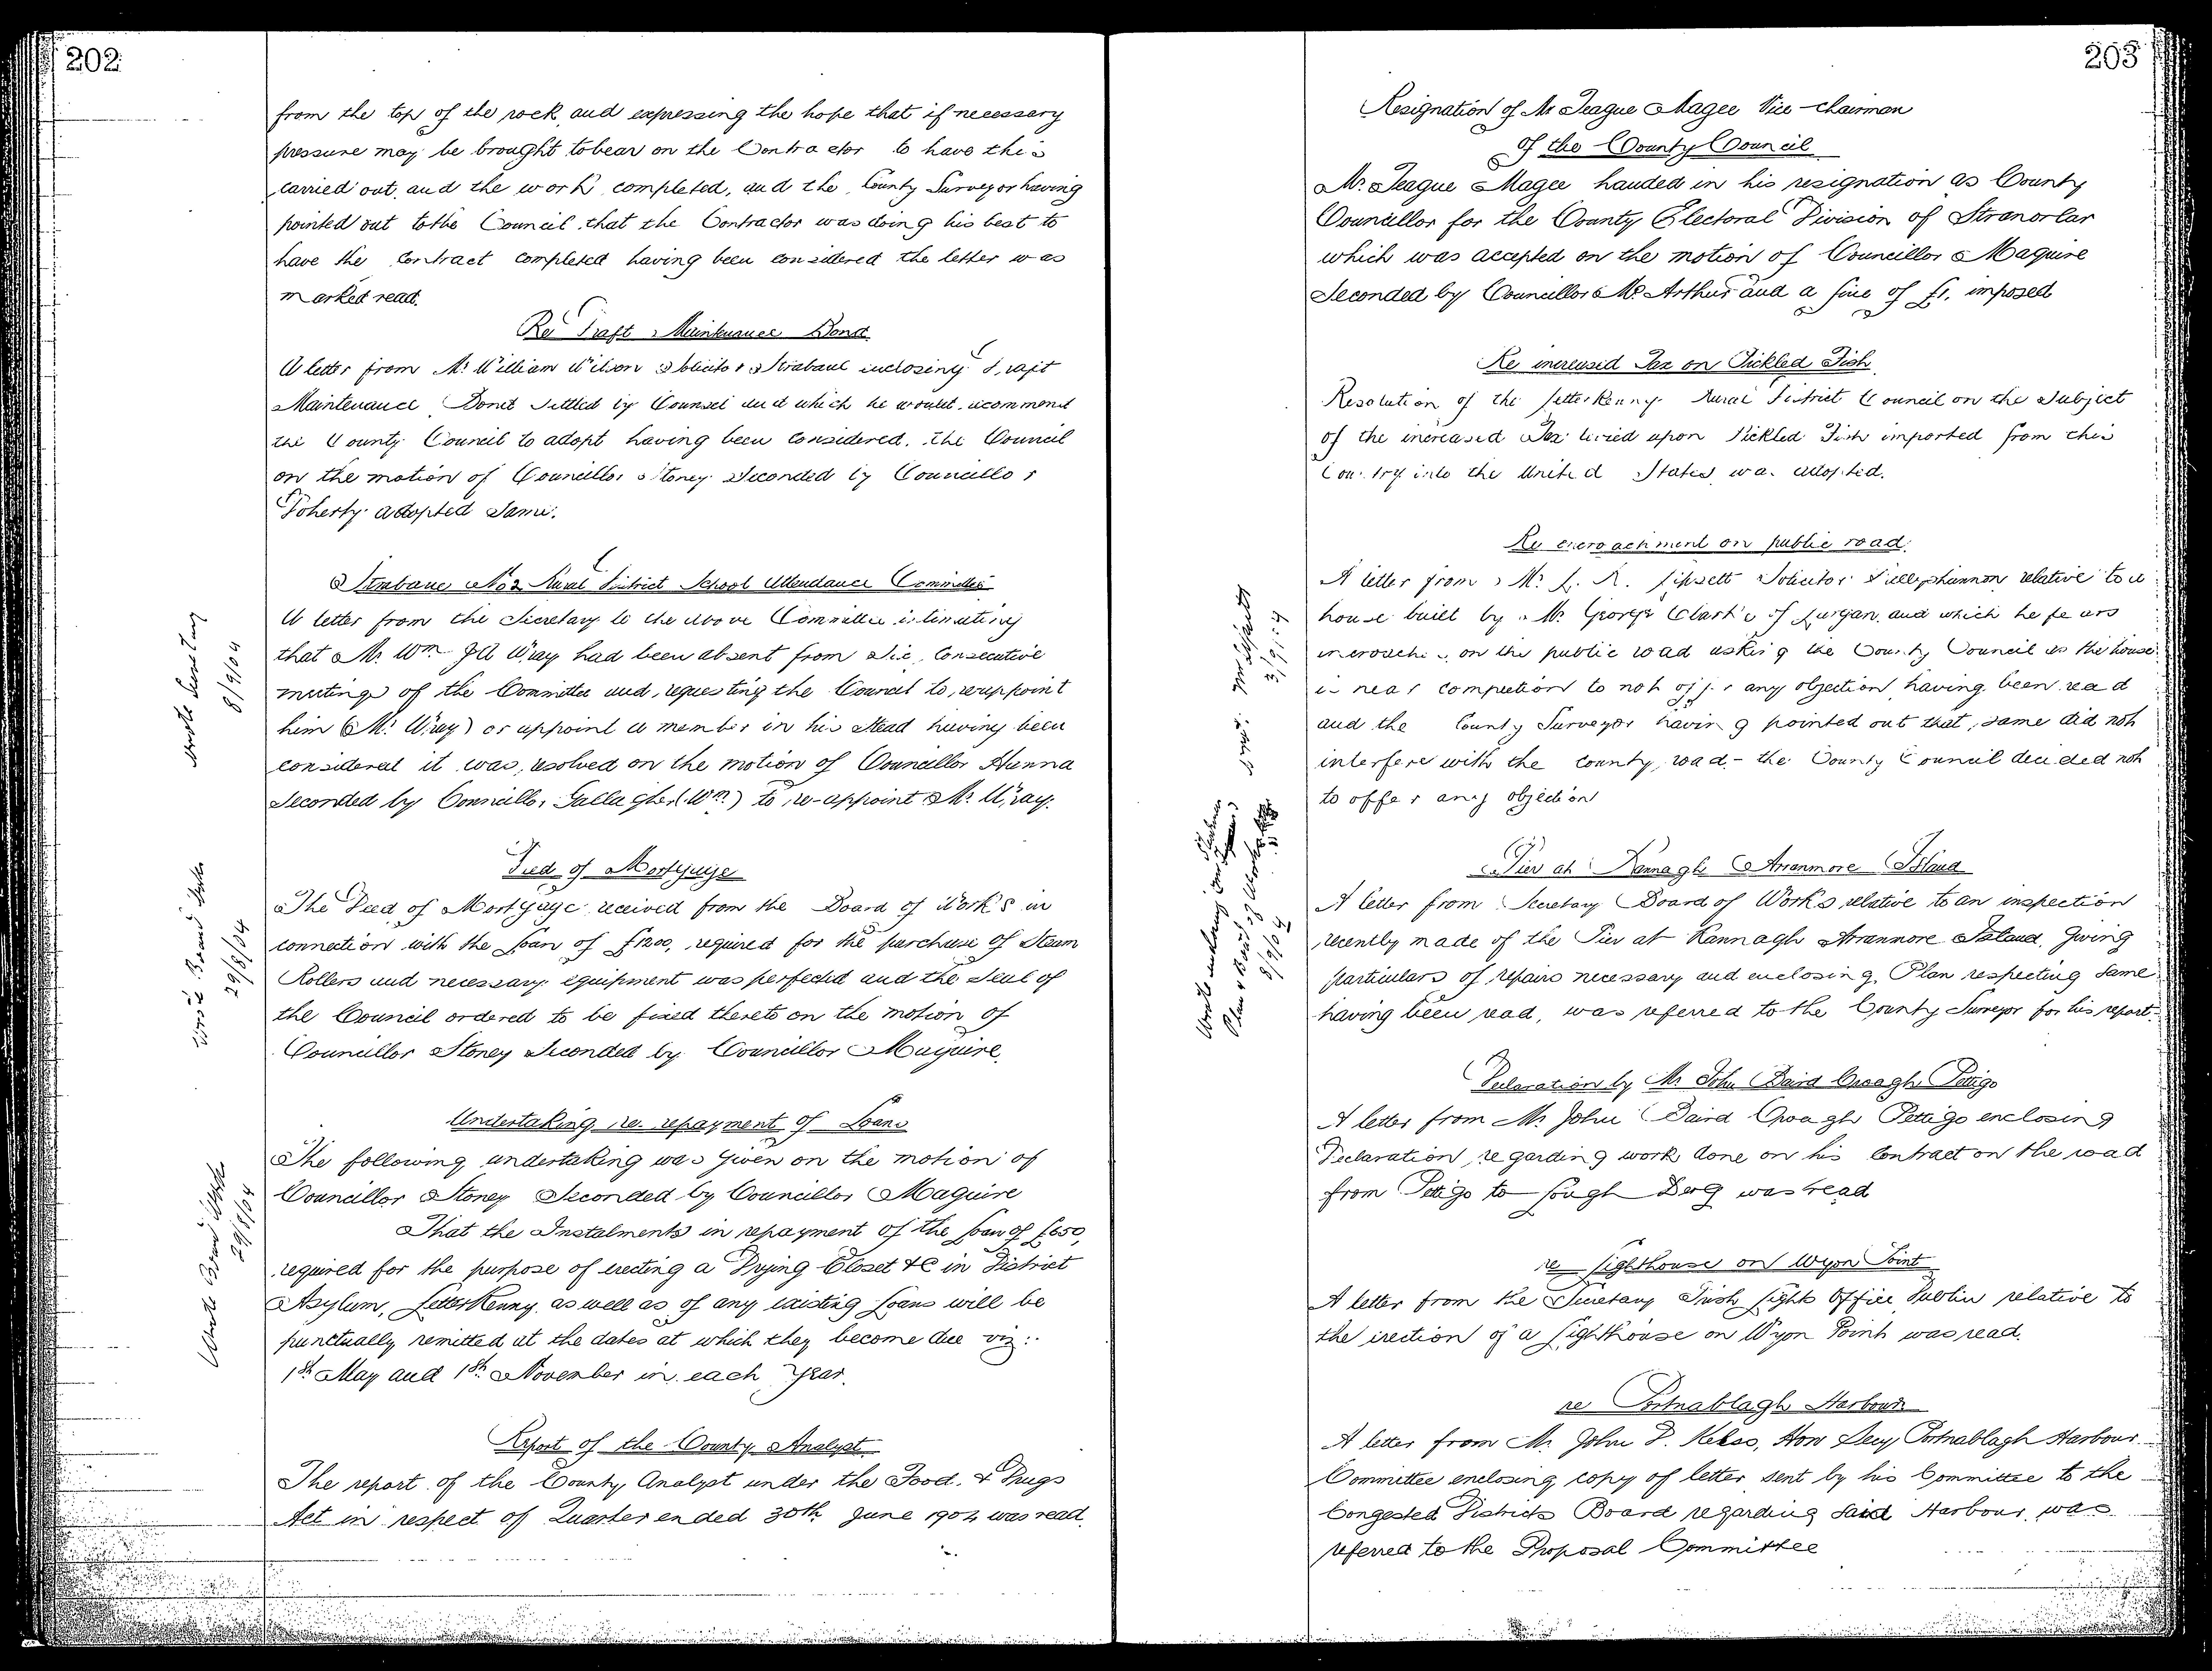 202
from the top of the rock and expressing the hope that if necessary
pressure may be brought to bear on the Contractor to have this
carried out, and the work completed, and the County Surveyor having
pointed out to the Council that the Contractor was doing his best to
have the Contract completed having been considered the letter was
marked read.
Re Draft Maintenance Bond
A letter from Mr William Wilson Solicitor Strabane inclosing Draft
Maintenance Bond settled by Counsel and which he would recommend
the County Council to adopt having been considered, the Council
on the motion of Councillor Stoney Seconded by Councillor
Doherty adopted Same.
Strabane No 2 Rural District School Attendance Committee
A letter from the Secretary to the above Committee intimating
that Mr Wm JA Wray had been absent from Six Consecutive
meetings of the Committee and requesting the Council to reappoint
him (Mr Wray) or appoint a member in his Stead having been
considered it was resolved on the motion of Councillor Hanna
Seconded by Councillor Gallagher (Wm) to re-appoint Mr Wray.
wrote Secretary
8/9/04
Deed of Mortgage
The Deed of Mortgage received from the Board of Works in
connection with the Loan of £1200, required for the purchase of Steam
Rollers and necessary equipment was perfected and the Seal of
the Council ordered to be fixed thereto on the motion of
Councillor Stoney Seconded by Councillor Maguire.
Wrote Board Works
29/8/04
Undertaking re. repayment of Loans
The following undertaking was given on the motion of
Councillor Stoney Seconded by Councillor Maguire
That the Instalments in repayment of the Loan of £650,
required for the purpose of erecting a Drying Closet &c in District
Asylum, Letterkenny, as well as of any existing Loans will be
punctually remitted at the dates at which they become due viz:.
1st May and 1st November in each Year.
Wrote Board Works
29/8/04
Report of the County Analyst
The report of the County Analyst under the Food & Drugs
Act in respect of Quarter ended 30th June 1904 was read.
203
Resignation of Mr Teague Magee Vice-Chairman
of the County Council
Mr Teague Magee handed in his resignation as County
Councillor for the County Electoral Division of Stranorlar
which was accepted on the motion of Councillor Maguire
Seconded by Councillor McArthur and a fine of £1. imposed
Re increased Tax on Pickled Fish
Resolution of the Letterkenny Rural District Council on the Subject
of the increased Tax levied upon Pickled Fish imported from this
Country into the United States was adopted.
Re encroachment on public road.
A letter from Mr L. R. Lipsett Solicitor Ballyshannon relative to a
house built by Mr George Clarke of Lurgan, and which he fears
encroaches on the public road asking the County Council as the house
is near completion to not offer any objection having been read
and the County Surveyor having pointed out that same did not
interfere with the County road - the County Council decided not
to offer any objection
Wrote Mr Lipsett
3/9/04
Pier at Rannagh Arranmore Island
A letter from Secretary Board of Works relative to an inspection
recently made of the Pier at Rannagh Arranmore Island, Giving
particulars of repairs necessary and enclosing Plan respecting Same
having been read, was referred to the County Surveyor for his report.
8/9/04
Declaration by Mr John Baird Croagh Pettigo
A letter from Mr John Baird Croagh Pettigo enclosing
Declaration regarding work done on his Contract on the road
from Pettigo to Lough Derg was read
re Lighthouse on Wyon Point
A letter from the Secretary Irish Lights Office Dublin relative to
the erection of a Lighthouse on Wyon Point was read.
re Portnablagh Harbour
A letter from Mr John D. Kelso, Hon Secy Portnablagh Harbour
Committee enclosing copy of letter sent by his Committee to the
Congested Districts Board regarding Said Harbour was
referred to the Proposal Committee